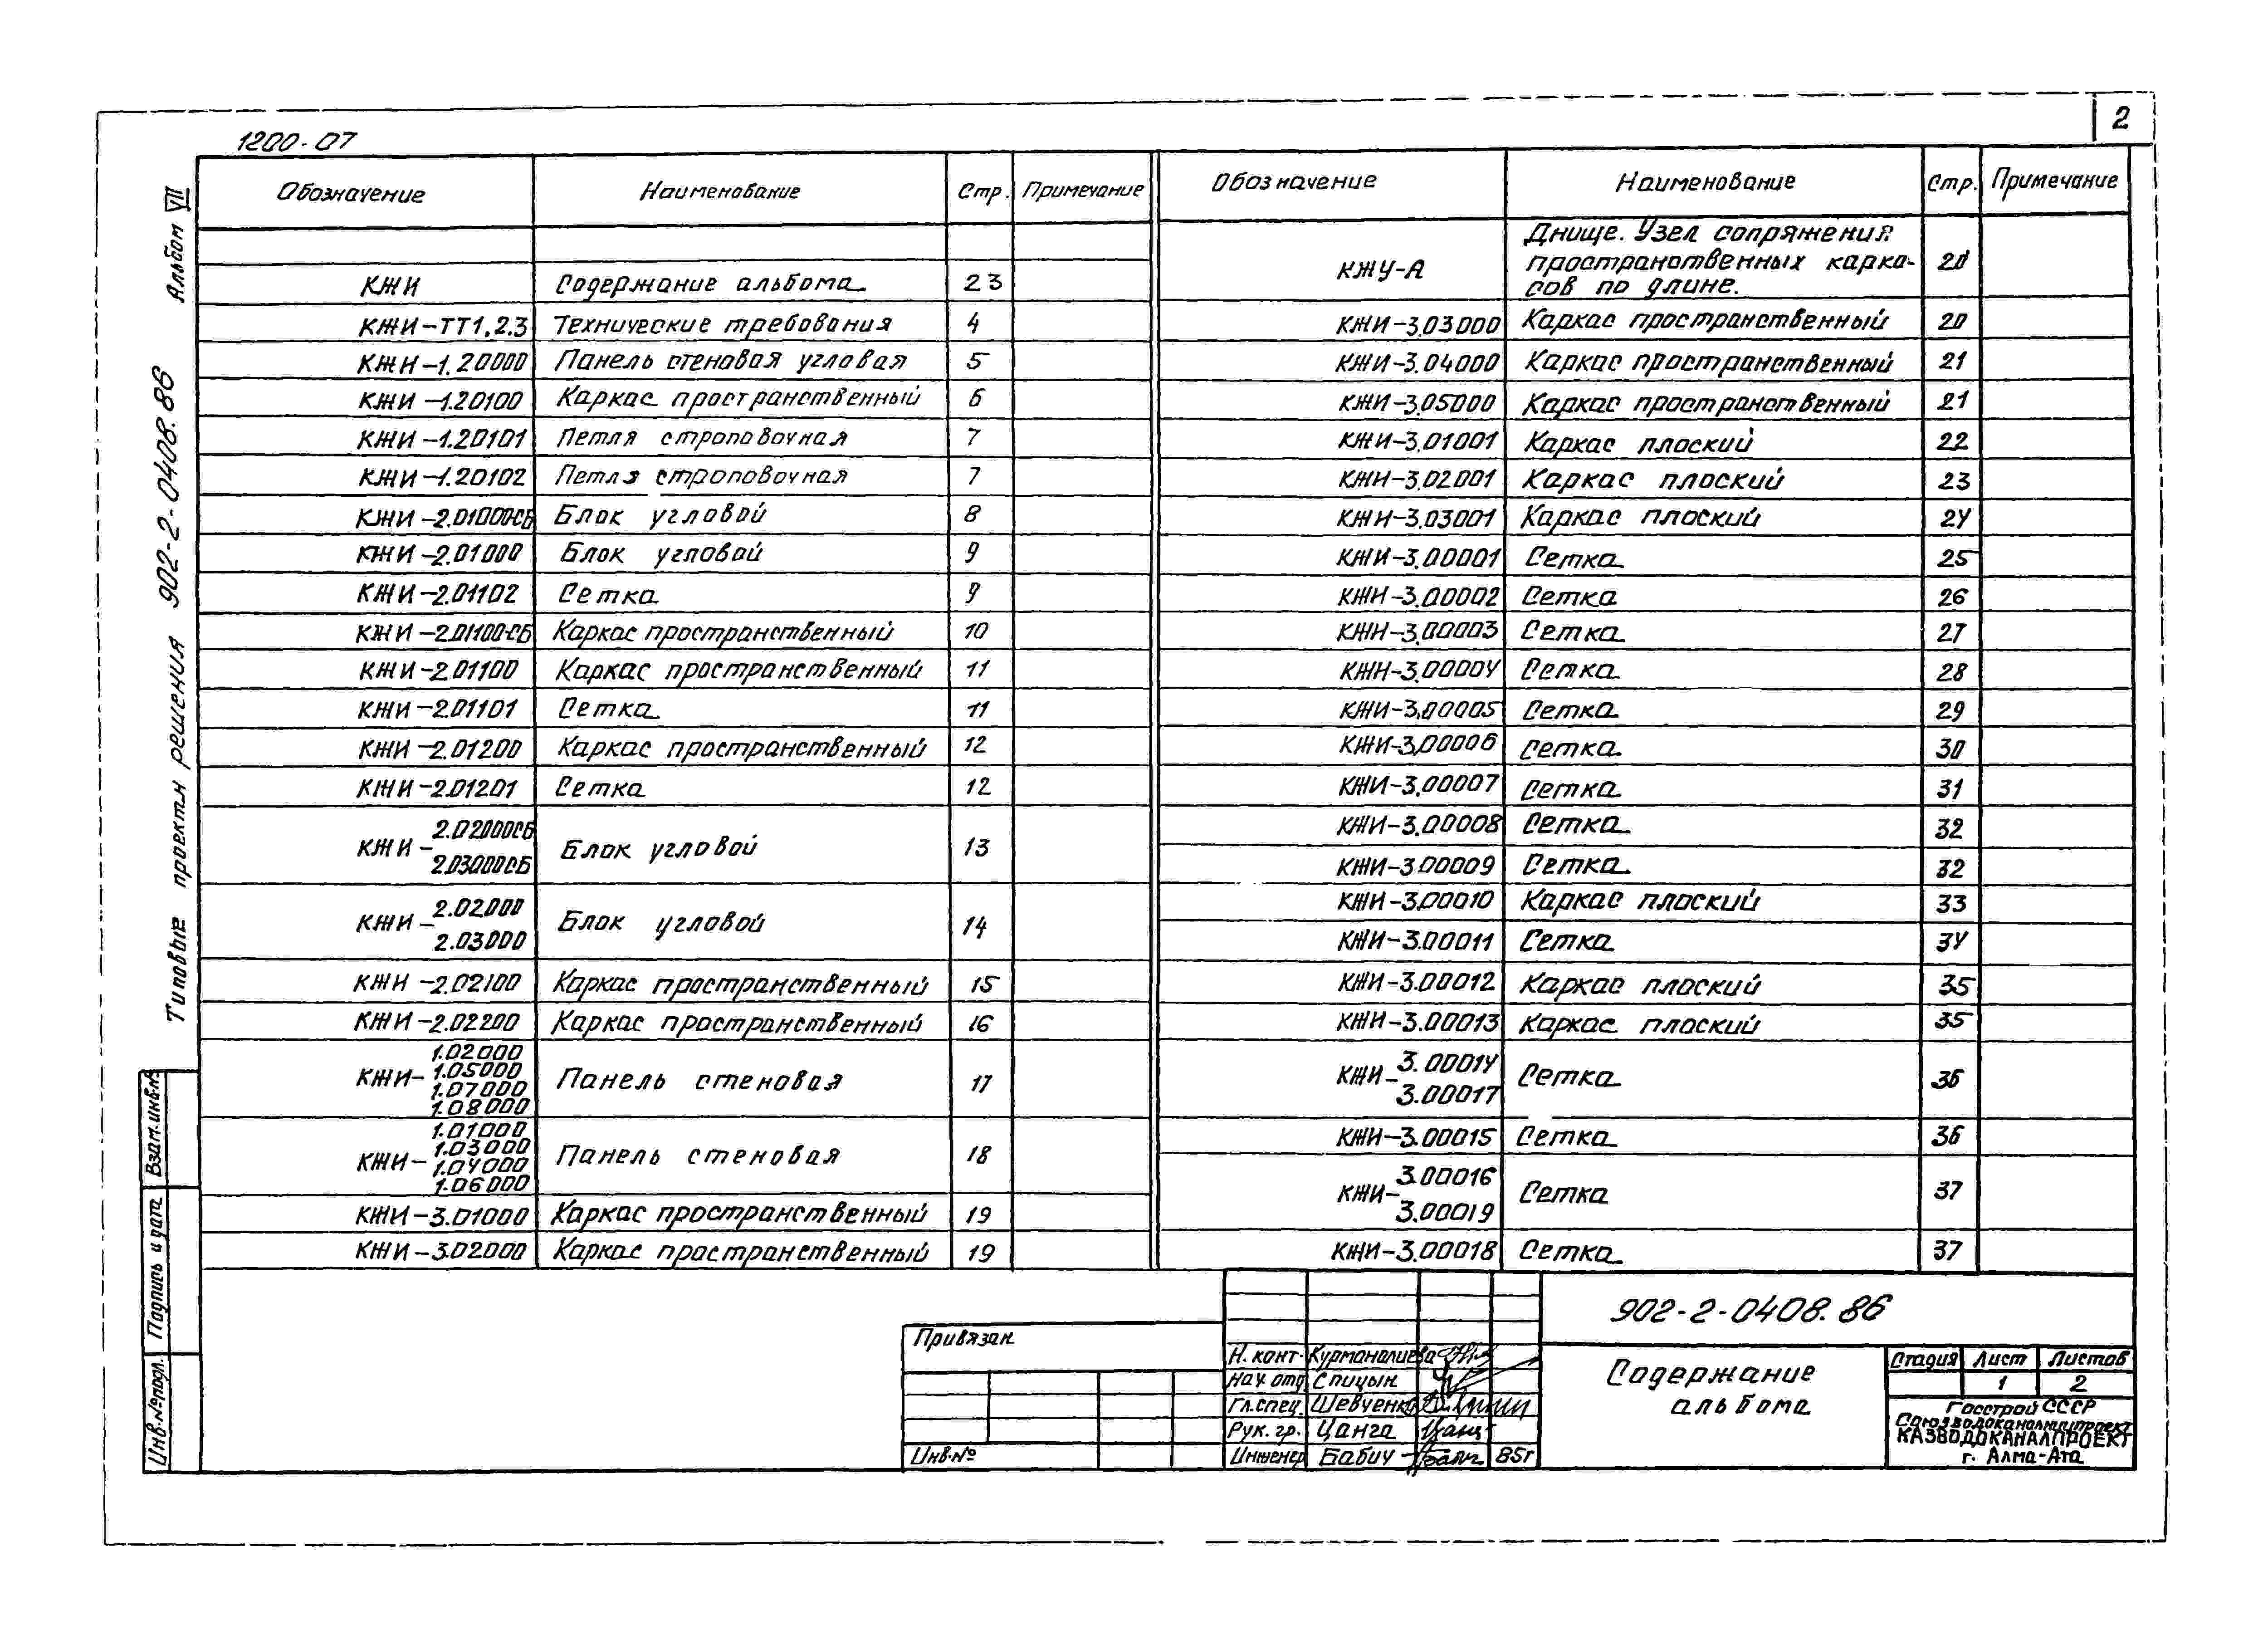 2
1200-07
Альбом VII
Типовые проекты решения 902-2-0408.86
Обозначение Наименование Стр. Примечание
КЖИ Содержание альбома 2 3
КЖИ-ТТ1.2.3 Технические требования 4
КЖИ-1.20000 Панель стеновая угловая 5
КЖИ-1.20100 Каркас пространственный 6
КЖИ-1.20101 Петля строповочная 7
КЖИ-1.20102 Петля строповочная 7
КЖИ-2.01000СБ Блок угловой 8
КЖИ-2.01000 Блок угловой 9
КЖИ-2.01102 Сетка 9
КЖИ-2.01100-СБ Каркас пространственный 10
КЖИ-2.01100 Каркас пространственный 11
КЖИ-2.01101 Сетка 11
КЖИ-2.01200 Каркас пространственный 12
КЖИ-2.01201 Сетка 12
2.02000СБ
КЖИ- Блок угловой 13
2.03000СБ
2.02000
КЖИ- Блок угловой 14
2.03000
КЖИ-2.02100 Каркас пространственный 15
КЖИ-2.02200 Каркас пространственный 16
1.02000
КЖИ-1.05000 Панель стеновая 17
1.07000
1.08000
1.01000
1.03000
КЖИ-1.04000 Панель стеновая 18
1.06000
КЖИ-3.01000 Каркас пространственный 19
КЖИ-3.02000 Каркас пространственный 19
Обозначение Наименование Стр. Примечание
Днище. Узел сопряжения
КЖУ-А пространственных карка- 20
сов по длине.
КЖИ-3.03000 Каркас пространственный 20
КЖИ-3.04000 Каркас пространственный 21
КЖИ-3.05000 Каркас пространственный 21
КЖИ-3.01001 Каркас плоский 22
КЖИ-3.02001 Каркас плоский 23
КЖИ-3.03001 Каркас плоский 24
КЖИ-3.00001 Сетка 25
КЖИ-3.00002 Сетка 26
КЖИ-3.00003 Сетка 27
КЖИ-3.00004 Сетка 28
КЖИ-3.00005 Сетка 29
КЖИ-3.00006 Сетка 30
КЖИ-3.00007 Сетка 31
КЖИ-3.00008 Сетка 32
КЖИ-3.00009 Сетка 32
КЖИ-3.00010 Каркас плоский 33
КЖИ-3.00011 Сетка 34
КЖИ-3.00012 Каркас плоский 35
КЖИ-3.00013 Каркас плоский 35
3.00014
КЖИ- Сетка 36
3.00017
КЖИ-3.00015 Сетка 36
3.00016
КЖИ- Сетка 37
3.00019
КЖИ-3.00018 Сетка 37
Взам.инв.№
Подпись и дата
Инв.№подл.
Привязан
Инв.№
Н. конт. Курманалиева
Нач. отд. Спицын
Гл.спец. Шевченко
Рук. гр. Цанга
Инженер Бабич 85г
902-2-0408.86
Содержание
альбома
Стадия Лист Листов
1 2
Госстрой СССР
Союзводоканалниипроект
КАЗВОДОКАНАЛПРОЕКТ
г. Алма-Ата